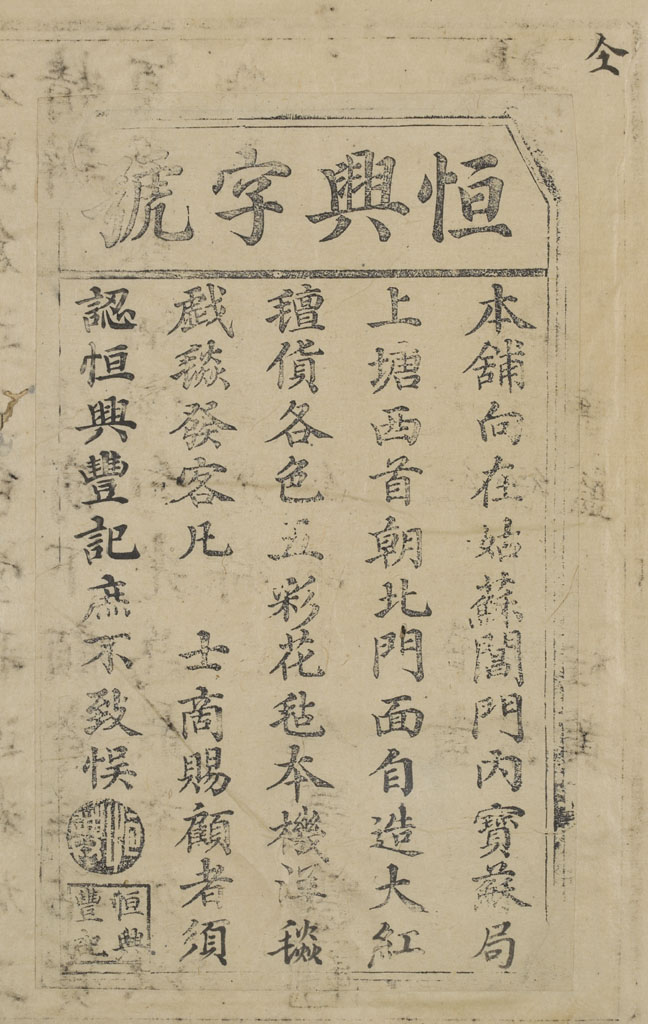 仝
恒興字號
本舖向在姑蘇閶門內寶蘇局
上塘西首朝北門面自造大紅
氊貨各色五彩花毡本機洋毯
戲毯發客凡　士商賜顧者須
認恒興豐記庶不致悞
恒興
豐記